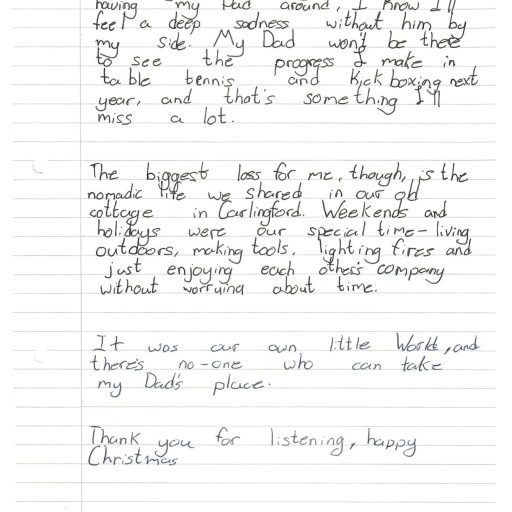 having my Dad around, I know I'll
feel a deep sadness without him by
my side. My Dad won't be there
to see the progress I make in
table tennis and Kickboxing next
year, and that's something I'll
miss a lot.
The biggest loss for me, though, is the
nomadic life we shared in our old
cottage in Carlingford. Weekends and
holidays were our special time - living
outdoors, making tools, lighting fires and
just enjoying each other's company
without worrying about time.
It was our own little World, and
there's no-one who can take
my Dad's place.
Thank you for listening, happy
Christmas